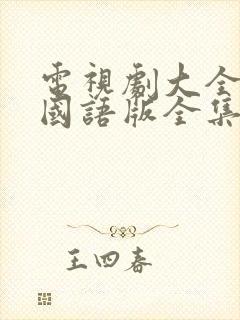 電視劇大全
國語版全集
王四春